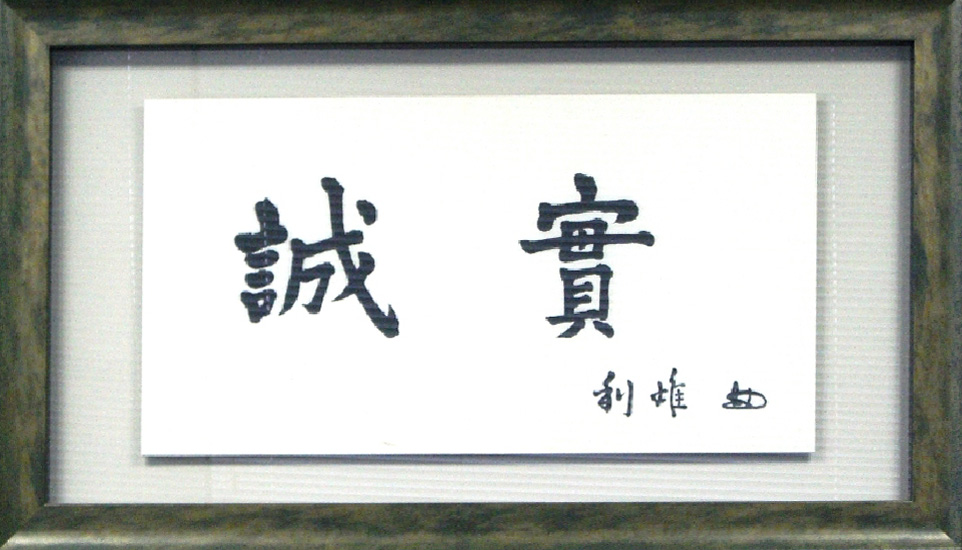 誠實
利雄